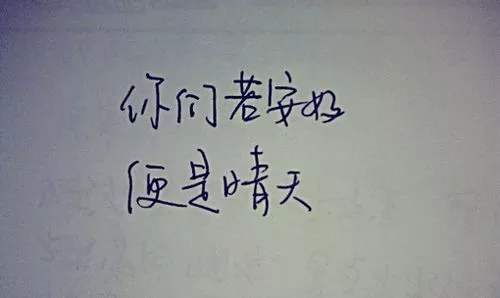 你们若安好
便是晴天